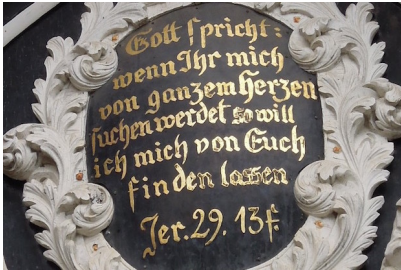 Gott spricht:
wenn Ihr mich
von ganzem Herzen
suchen werdet so will
ich mich von Euch
finden lassen
Jer. 29. 13f.